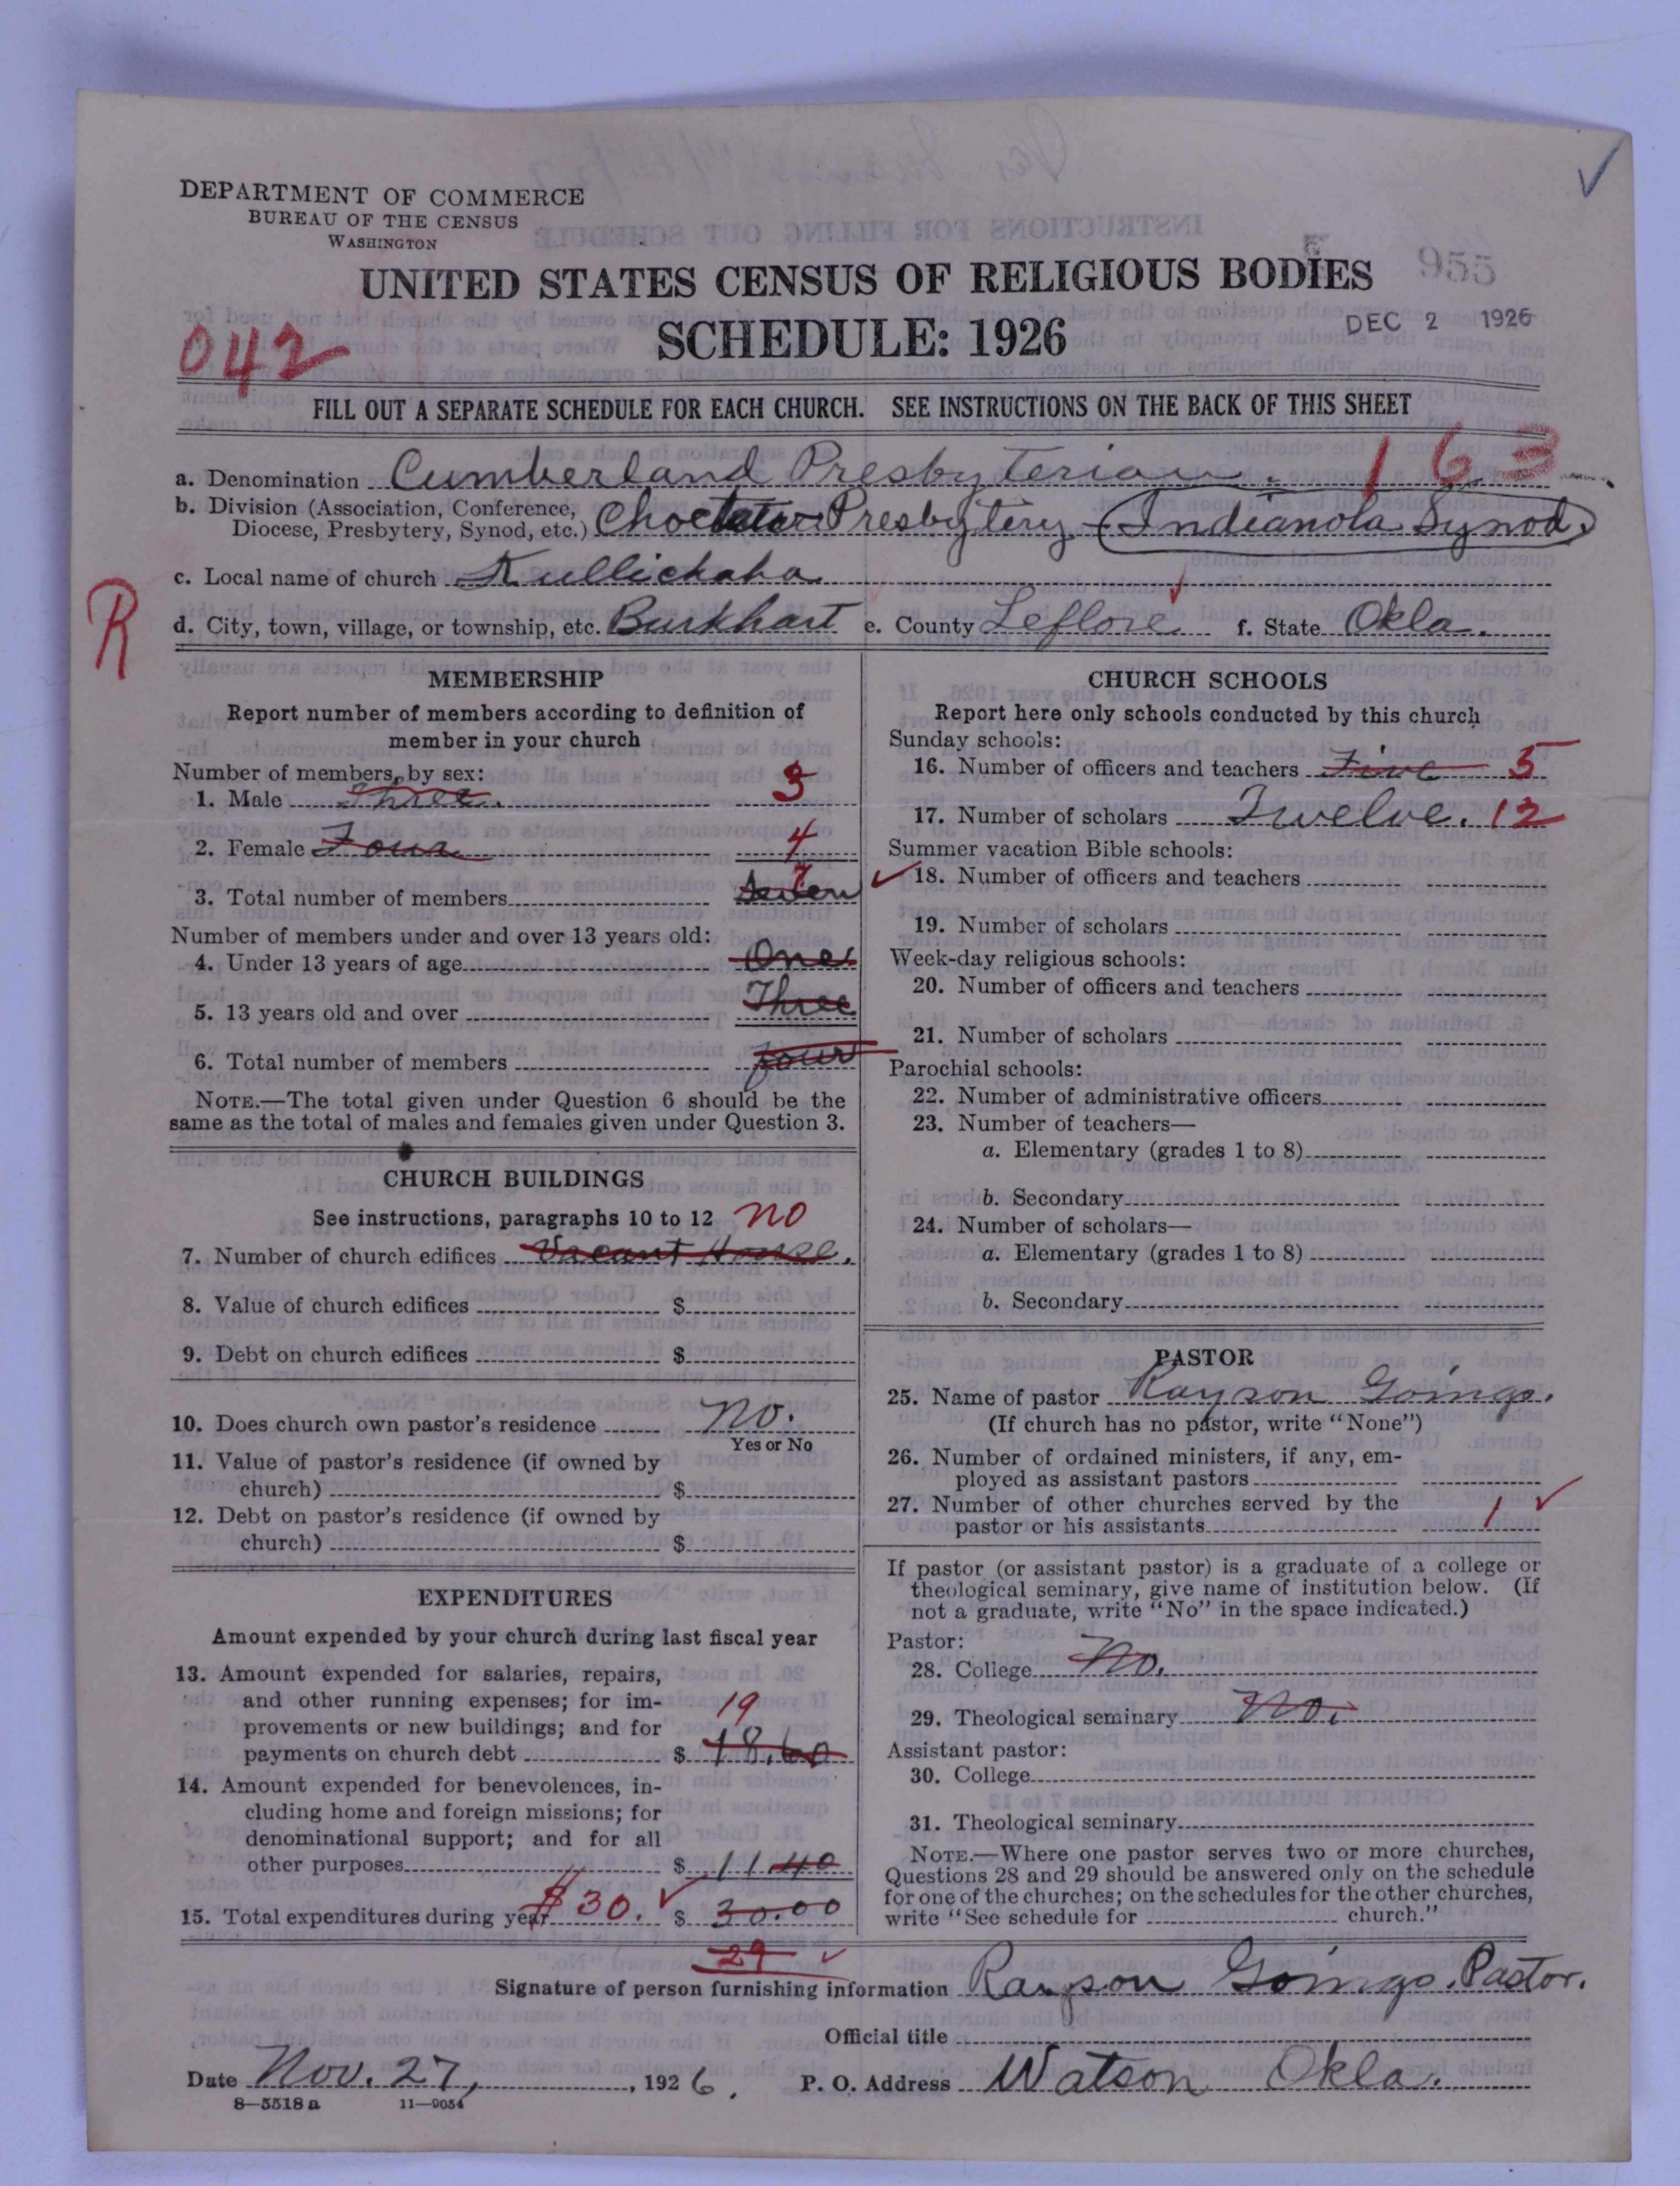 DEPARTMENT OF COMMERCE
BUREAU OF THE CENSUS
WASHINGTON
UNITED STATES CENSUS OF RELIGIOUS BODIES
955
SCHEDULE: 1926
DEC 2 1926
042
FILL OUT A SEPARATE SCHEDULE FOR EACH CHURCH. SEE INSTRUCTIONS ON THE BACK OF THIS SHEET
a. Denomination Cumberland Presbyterian. 163
b. Division (Association, Conference,
Diocese, Presbytery, Synod, etc.) Choctaw Presbytery (Indianola Synod.)
c. Local name of church Kullichaha
R
d. City, town, village, or township, etc. Burkhart e. County Leflore f. State Okla.
MEMBERSHIP
Report number of members according to definition of
member in your church
Number of members, by sex:
1. Male Three. 3
2. Female Four 4
3. Total number of members Seven 7
Number of members under and over 13 years old:
4. Under 13 years of age One
5. 13 years old and over Three
6. Total number of members four
NOTE.—The total given under Question 6 should be the
same as the total of males and females given under Question 3.
CHURCH BUILDINGS
See instructions, paragraphs 10 to 12 no
7. Number of church edifices Vacant House.
8. Value of church edifices $
9. Debt on church edifices $
10. Does church own pastor's residence no.
Yes or No
11. Value of pastor's residence (if owned by
church) $
12. Debt on pastor's residence (if owned by
church) $
EXPENDITURES
Amount expended by your church during last fiscal year
13. Amount expended for salaries, repairs,
and other running expenses; for im-
provements or new buildings; and for
payments on church debt $ 18.60 19
14. Amount expended for benevolences, in-
cluding home and foreign missions; for
denominational support; and for all
other purposes $ 11.40
15. Total expenditures during year $30. $ 30.00
29
CHURCH SCHOOLS
Report here only schools conducted by this church
Sunday schools:
16. Number of officers and teachers Five 5
17. Number of scholars Twelve. 12
Summer vacation Bible schools:
18. Number of officers and teachers
19. Number of scholars
Week-day religious schools:
20. Number of officers and teachers
21. Number of scholars
Parochial schools:
22. Number of administrative officers
23. Number of teachers—
a. Elementary (grades 1 to 8)
b. Secondary
24. Number of scholars—
a. Elementary (grades 1 to 8)
b. Secondary
PASTOR
25. Name of pastor Rayson Goings.
(If church has no pastor, write "None")
26. Number of ordained ministers, if any, em-
ployed as assistant pastors
27. Number of other churches served by the
pastor or his assistants 1
If pastor (or assistant pastor) is a graduate of a college or
theological seminary, give name of institution below. (If
not a graduate, write "No" in the space indicated.)
Pastor:
28. College No.
29. Theological seminary No.
Assistant pastor:
30. College
31. Theological seminary
NOTE.—Where one pastor serves two or more churches,
Questions 28 and 29 should be answered only on the schedule
for one of the churches; on the schedules for the other churches,
write "See schedule for church."
Signature of person furnishing information Rayson Goings. Pastor.
Official title
Date Nov. 27, , 1926. P. O. Address Watson Okla.
8—5518 a 11—9054